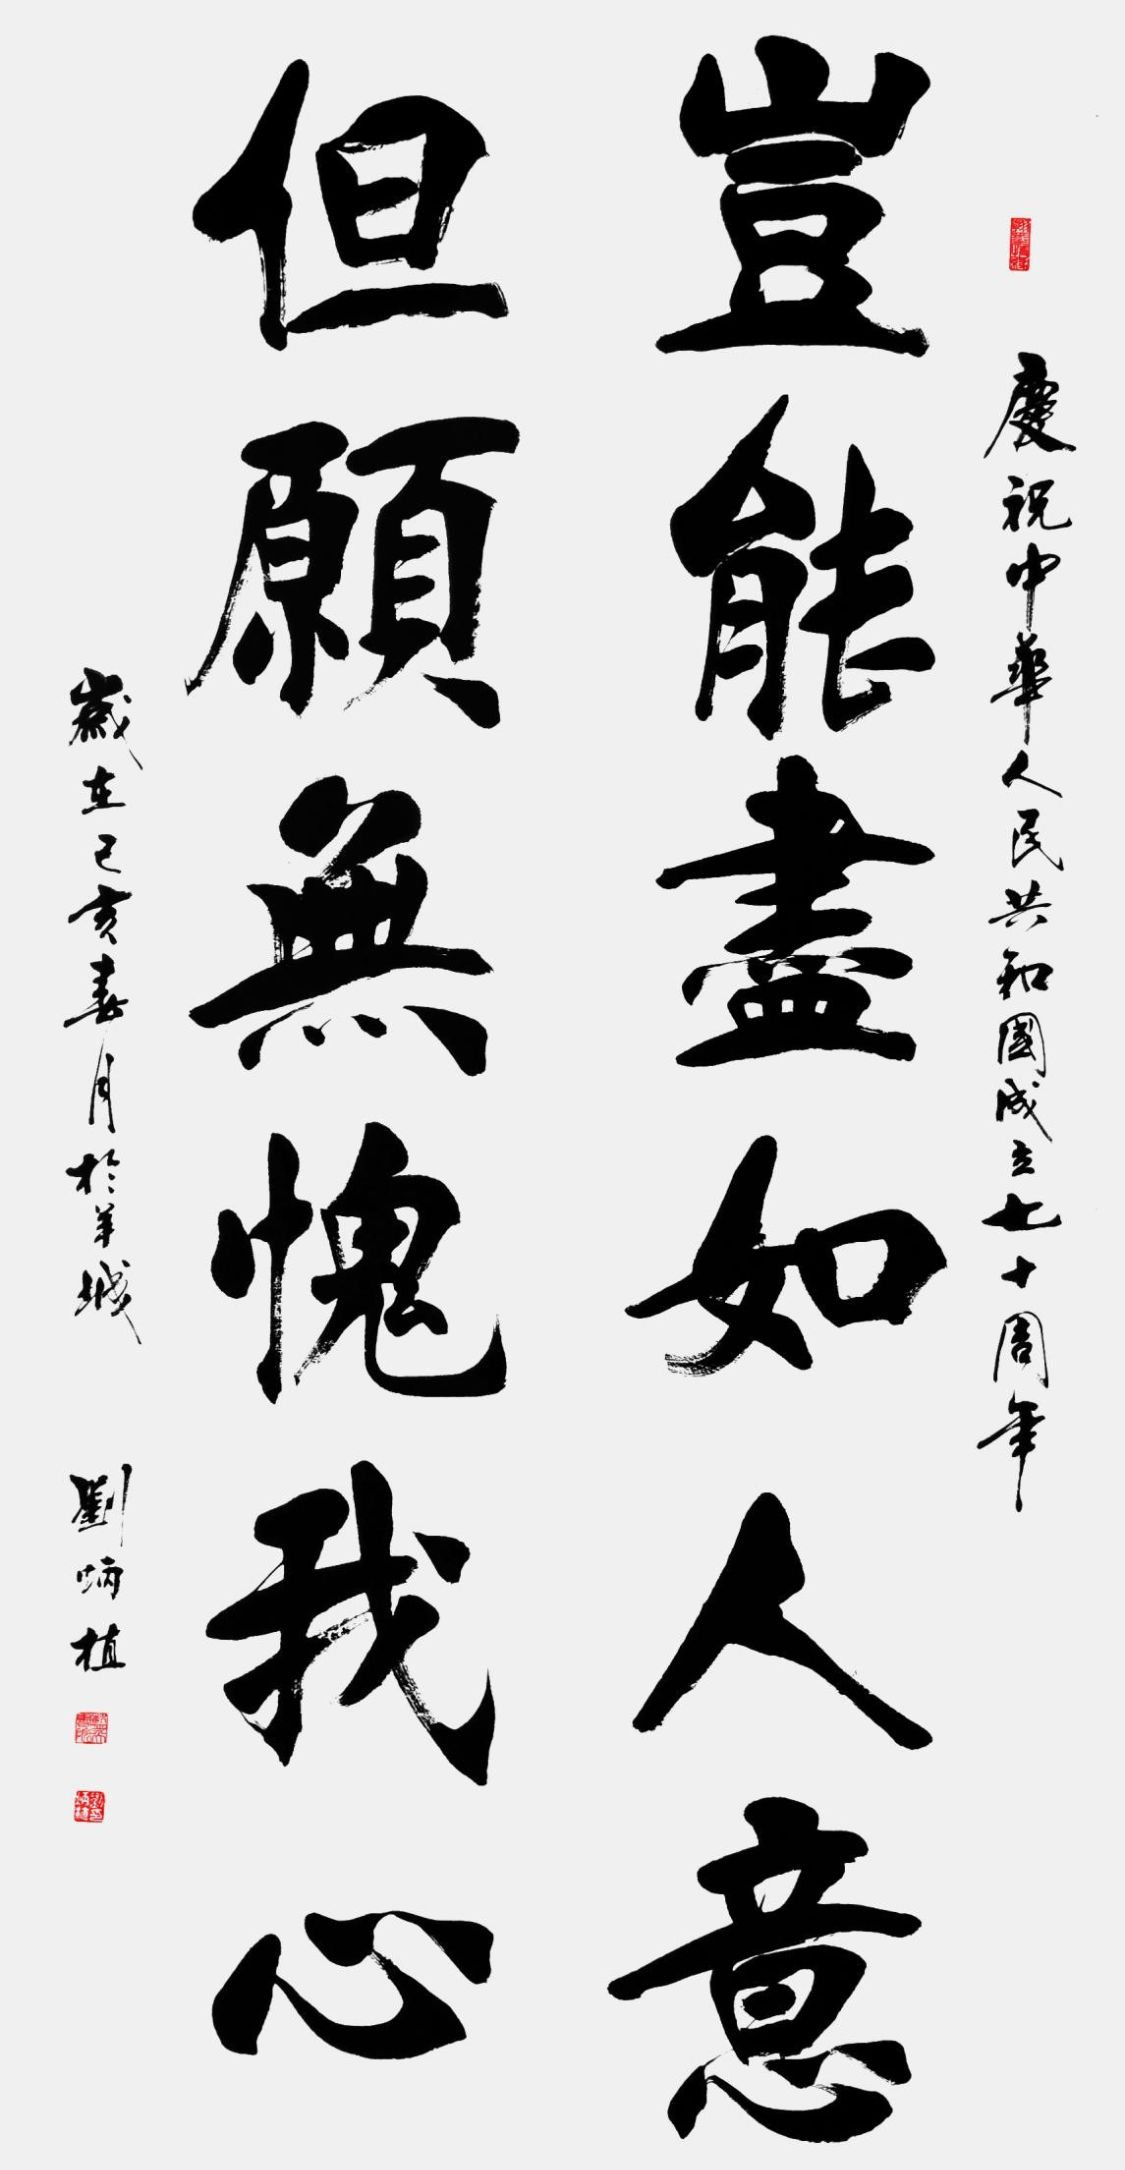 慶祝中華人民共和國成立七十周年
豈能盡如人意
但願無愧我心
歲在己亥春月於羊城 劉炳植